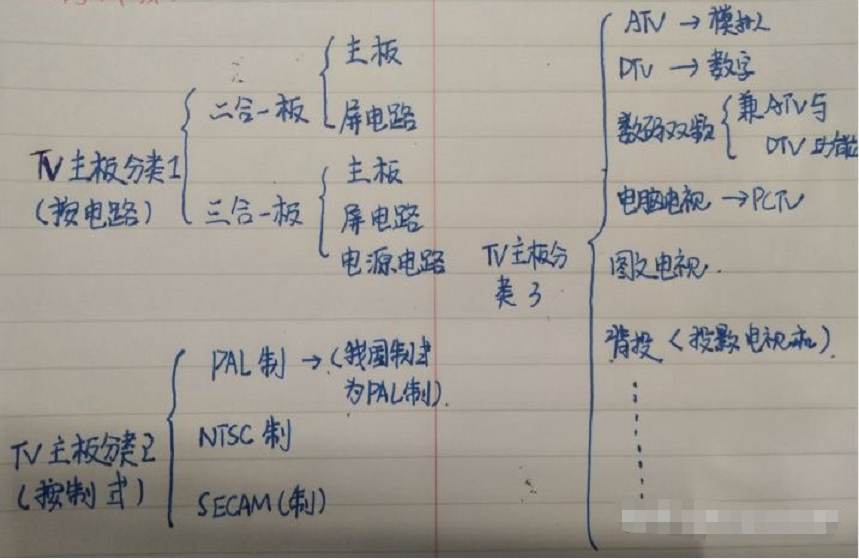 TV主板分类1
(按电路)
二合一板
主板
屏电路
三合一板
主板
屏电路
电源电路
TV主板分类2
(按制式)
PAL制 → (我国制式
为PAL制).
NTSC制
SECAM(制)
TV主板分
类3
ATV → 模拟
DTV → 数字
数码双数
兼ATV与
DTV功能
电脑电视 → PCTV
图文电视.
背投(投影电视机)